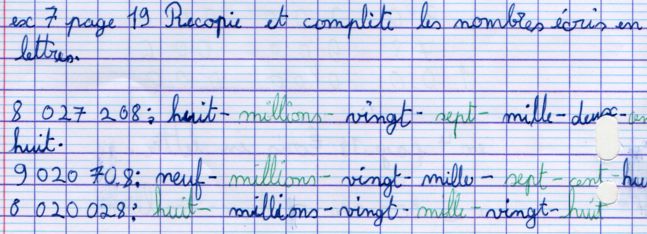 ex 7 page 19 Recopie et complète les nombres écris en
lettres.
8 027 208 : huit - millions - vingt - sept - mille - deux - cen
huit.
9 020 708 : neuf - millions - vingt - mille - sept - cent - hu
8 020 028 : huit - millions - vingt - mille - vingt - huit